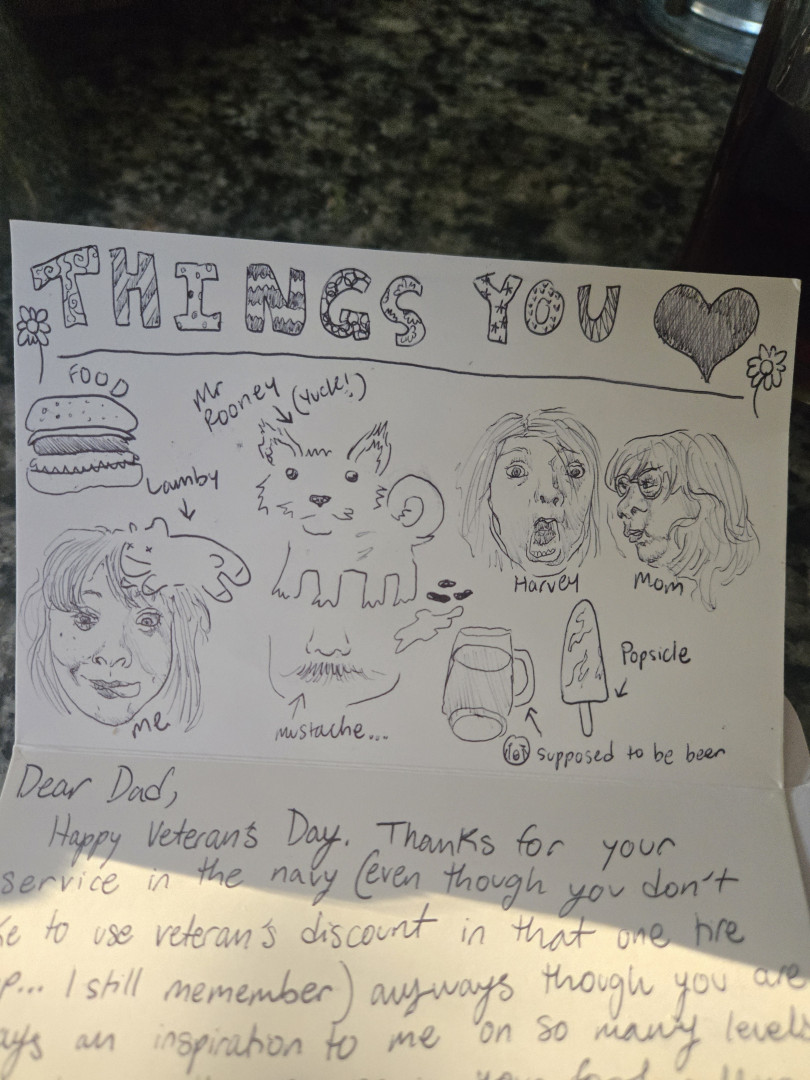 THINGS YOU
FOOD
Mr
Rooney (Yuck!)
Lamby
Harvey
Mom
me
mustache...
Popsicle
supposed to be beer
Dear Dad,
Happy Veteran's Day. Thanks for your
service in the navy (even though you don't
to use veteran's discount in that one tire
... I still memember) anyways though you are
an inspiration to me on so many levels
your food